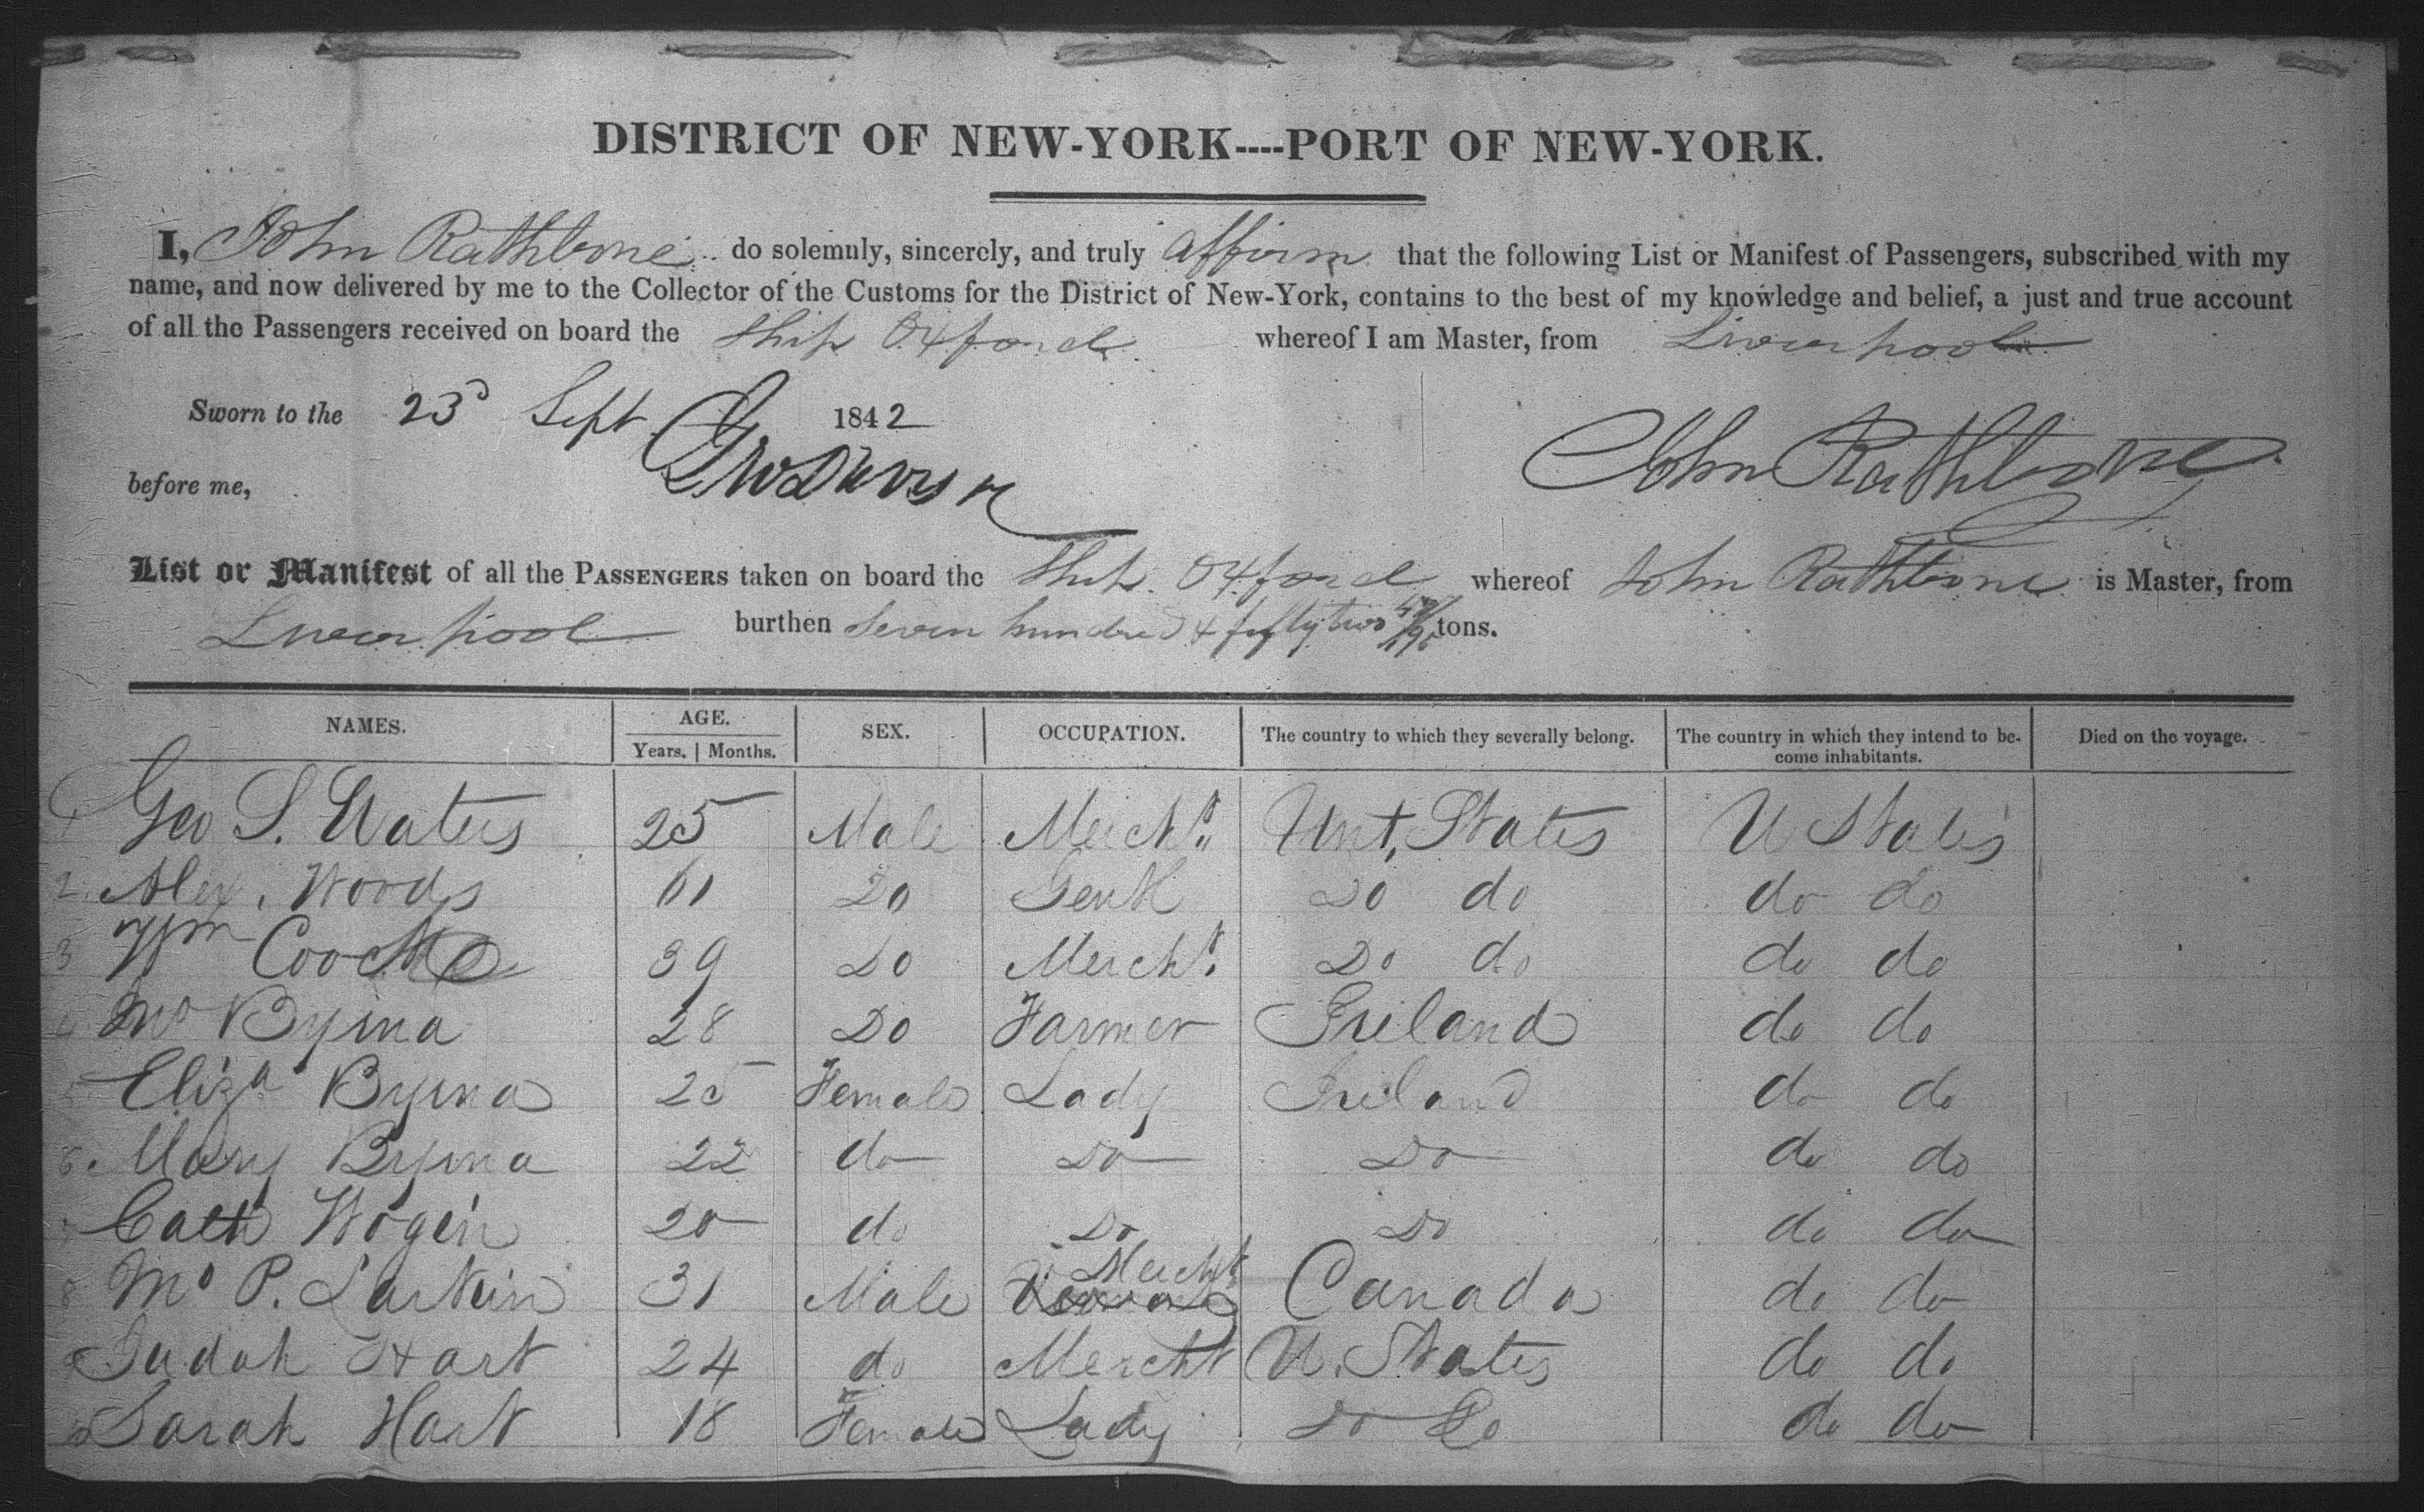 DISTRICT OF NEW-YORK----PORT OF NEW-YORK.
I, John Rathbone do solemnly, sincerely, and truly affirm that the following List or Manifest of Passengers, subscribed with my
name, and now delivered by me to the Collector of the Customs for the District of New-York, contains to the best of my knowledge and belief, a just and true account
of all the Passengers received on board the Ship Oxford whereof I am Master, from Liverpool
Sworn to the 23d Sept 1842
before me,
John Rathbone
List or Manifest of all the PASSENGERS taken on board the Ship Oxford whereof John Rathbone is Master, from
Liverpool burthen Seven hundred & fifty two tons.
NAMES. AGE. SEX. OCCUPATION. The country to which they severally belong. The country in which they intend to be- Died on the voyage.
Years. | Months. come inhabitants.
1 Geo S. Waters 25 Male Mercht. Unt. States U States
2 Alex. Woods 61 Do Gentl Do do do do
3 Wm 39 Do Mercht. Do do do do
Jno Byrna 28 Do Farmer Ireland do do
5 Eliza Byrna 25 Female Lady Ireland do do
6 Mary Byrna 22 do Do Do do do
Cath Wogin 20 do Do Do do do
8 Mo P. Larkin 31 Male Mercht Canada do do
9 Judah Hart 24 do Mercht U. States do do
10 Sarah Hart 18 Female Lady Do Do do do